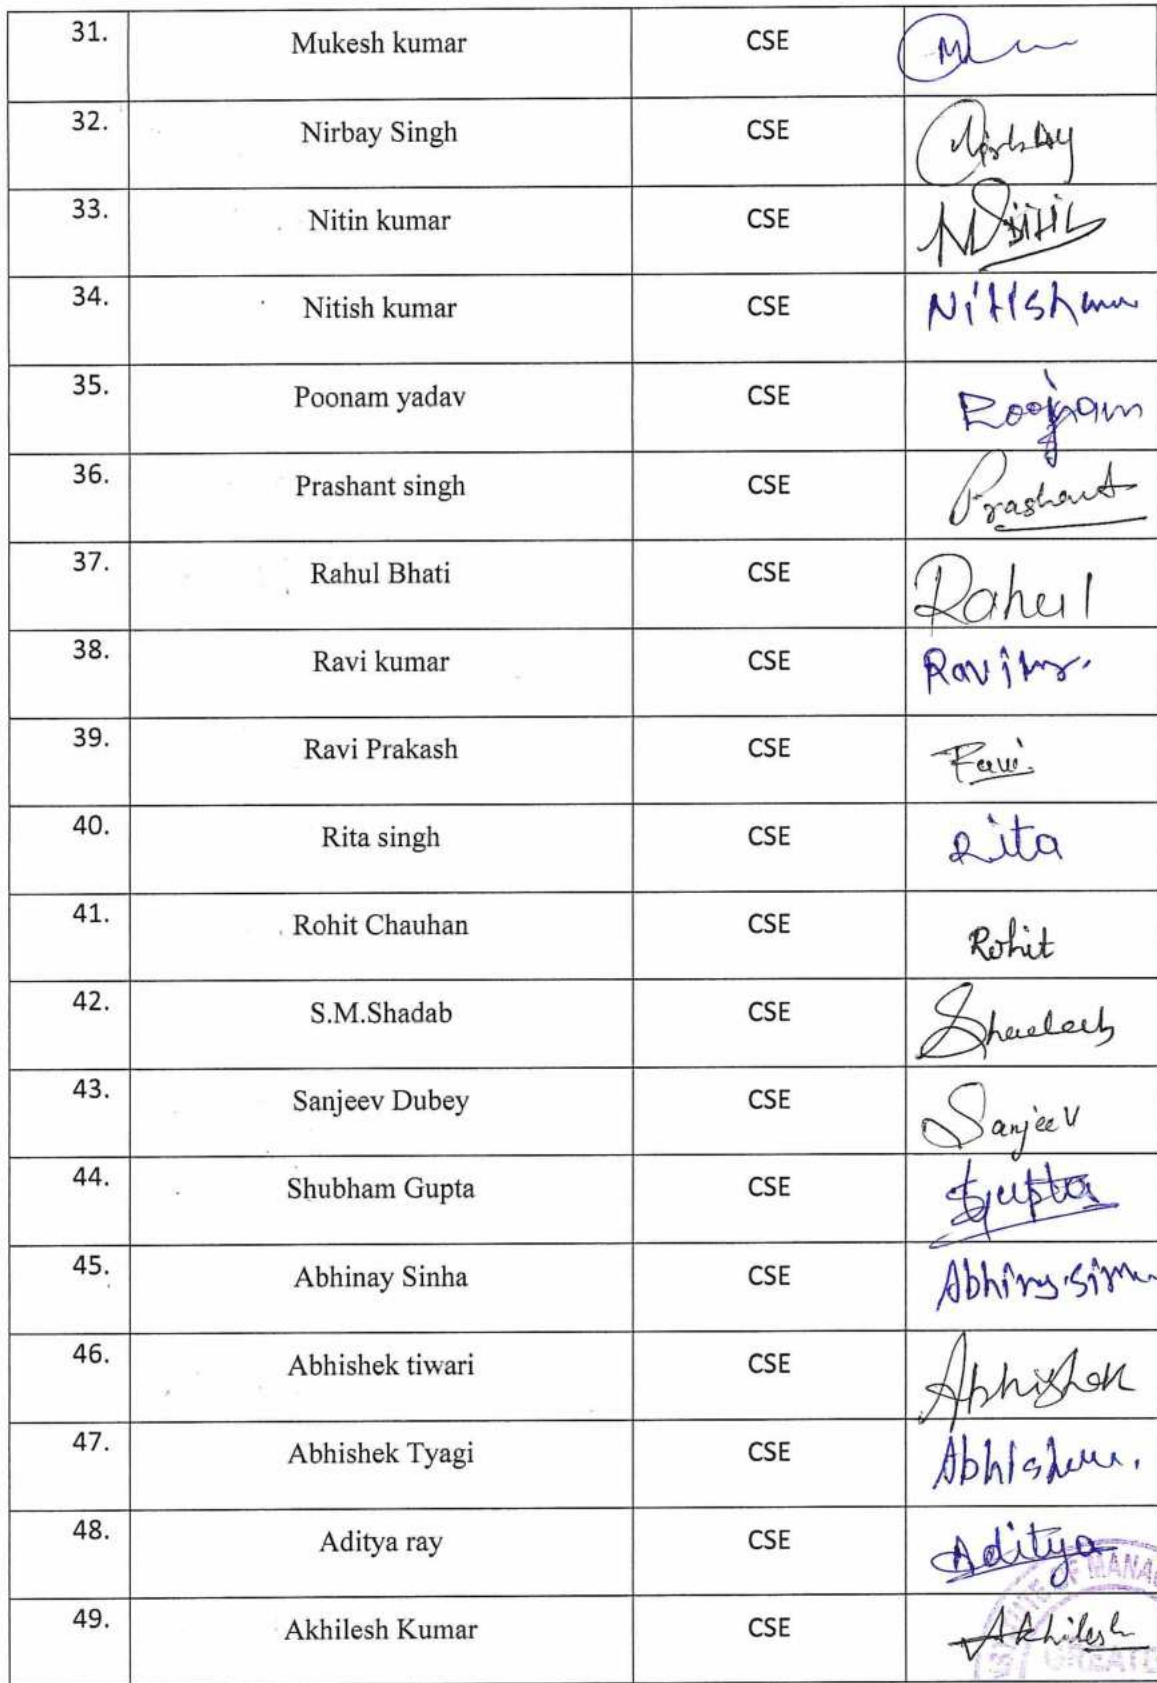 31. Mukesh kumar CSE M
32. Nirbay Singh CSE Nirbhay
33. Nitin kumar CSE Nitin
34. Nitish kumar CSE Nitish
35. Poonam yadav CSE Poonam
36. Prashant singh CSE Prashant
37. Rahul Bhati CSE Rahul
38. Ravi kumar CSE Ravi
39. Ravi Prakash CSE Ravi
40. Rita singh CSE Rita
41. Rohit Chauhan CSE Rohit
42. S.M.Shadab CSE Shadab
43. Sanjeev Dubey CSE Sanjeev
44. Shubham Gupta CSE Gupta
45. Abhinay Sinha CSE
46. Abhishek tiwari CSE Abhishek
47. Abhishek Tyagi CSE
48. Aditya ray CSE Aditya
OF MANA
49. Akhilesh Kumar CSE Akhilesh